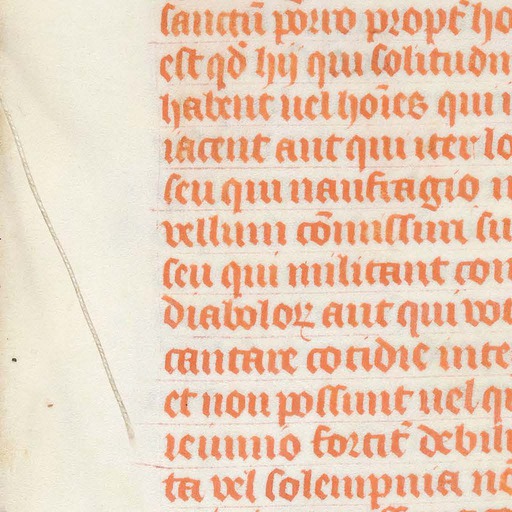 sanctū porro propt̄ ho
est qđ hij qui solitudin
habent uel hoīes qui i
iacent aut qui iter lo
seu qui naufragio
vellum cōmissum su
seu qui militant con
diaboloꝝ aut qui vot
cantare cotidie inte
et non possunt uel qu
ieiunio fortit̄ debili
ta vel solempnia nō